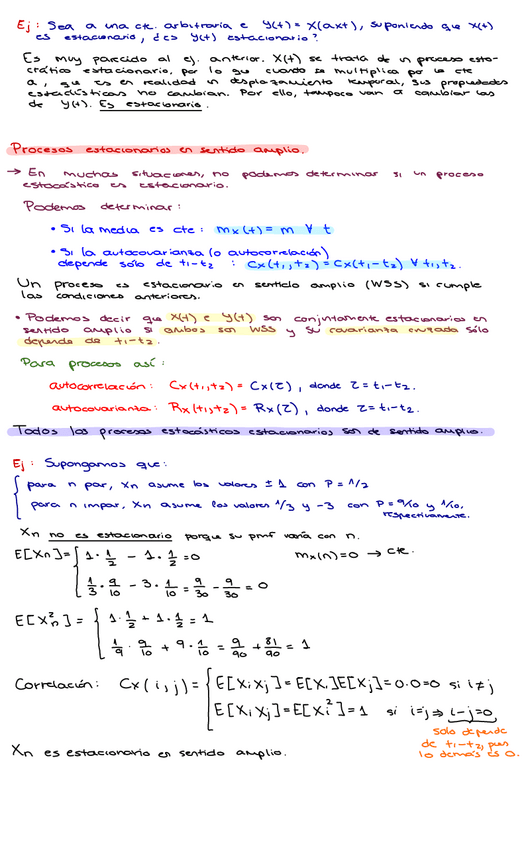 Ej: Sea a una cte. arbitraria e Y(t) = X(a+t), suponiendo que X(t)
es estacionario, ¿es Y(t) estacionario?
Es muy parecido al ej. anterior. X(t) se trata de un proceso esto-
cástico estacionario, por lo que cuando se multiplica por la cte
a, que es en realidad un desplazamiento temporal, sus propiedades
estadísticas no cambian. Por ello, tampoco van a cambiar las
de Y(t). Es estacionario.
Procesos estacionarios en sentido amplio.
→ En muchas situaciones, no podemos determinar si un proceso
estocástico es estacionario.
Podemos determinar:
• Si la media es cte: mx(t) = m ∀ t
• Si la autocovarianza (o autocorrelación)
depende sólo de t1-t2 : Cx(t1,t2) = Cx(t1-t2) ∀ t1,t2.
Un proceso es estacionario en sentido amplio (WSS) si cumple
las condiciones anteriores.
• Podemos decir que X(t) e Y(t) son conjuntamente estacionarios en
sentido amplio si ambos son WSS y su covarianza cruzada sólo
depende de t1-t2.
Para procesos así:
autocorrelación: Cx(t1,t2) = Cx(τ), donde τ = t1-t2.
autocovarianza: Rx(t1,t2) = Rx(τ), donde τ = t1-t2.
Todos los procesos estocásticos estacionarios son de sentido amplio.
Ej: Supongamos que:
para n par, Xn asume los valores ± 1 con P = 1/2
para n impar, Xn asume los valores 1/3 y -3 con P = 9/10 y 1/10,
respectivamente.
Xn no es estacionario porque su pmf varía con n.
E[Xn] = { 1 · 1/2 - 1 · 1/2 = 0 mx(n) = 0 → cte.
1/3 · 9/10 - 3 · 1/10 = 9/30 - 9/30 = 0
E[X²n] = { 1 · 1/2 + 1 · 1/2 = 1
1/9 · 9/10 + 9 · 1/10 = 9/90 + 81/90 = 1
Correlación: Cx(i,j) = { E[XiXj] = E[Xi]E[Xj] = 0·0 = 0 si i≠j
E[XiXj] = E[Xi²] = 1 si i=j ⇒ i-j=0
Solo depende
de t1-t2, pues
lo demás es 0.
Xn es estacionario en sentido amplio.